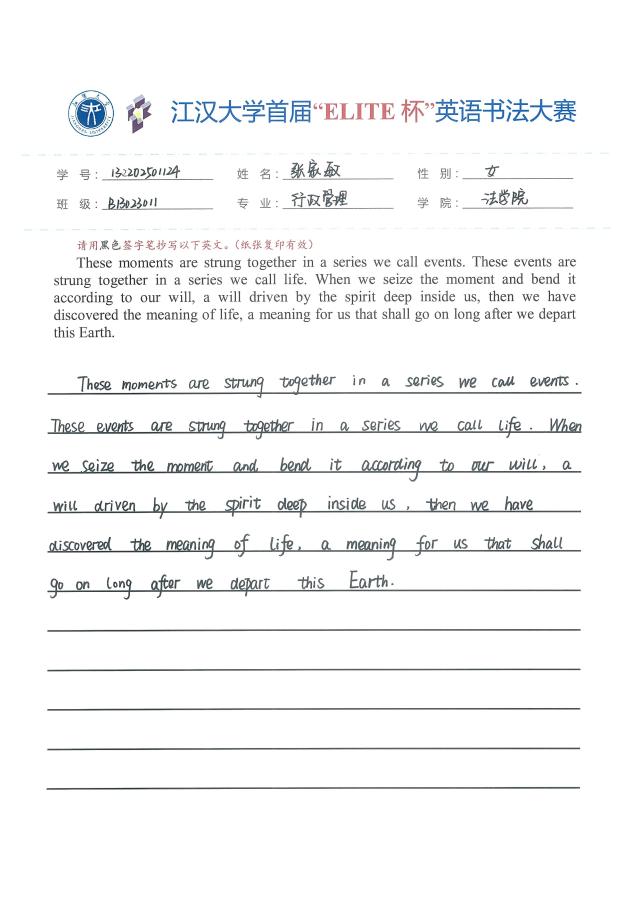 江汉大学首届“ELITE 杯”英语书法大赛
学 号: 132202501124 姓 名: 张家敏 性 别: 女
班 级: B13023011 专 业: 行政管理 学 院: 法学院
请用黑色签字笔抄写以下英文。(纸张复印有效)
These moments are strung together in a series we call events. These events are
strung together in a series we call life. When we seize the moment and bend it
according to our will, a will driven by the spirit deep inside us, then we have
discovered the meaning of life, a meaning for us that shall go on long after we depart
this Earth.
These moments are strung together in a series we call events.
These events are strung together in a series we call life. When
we seize the moment and bend it according to our will, a
will driven by the spirit deep inside us, then we have
discovered the meaning of life, a meaning for us that shall
go on long after we depart this Earth.